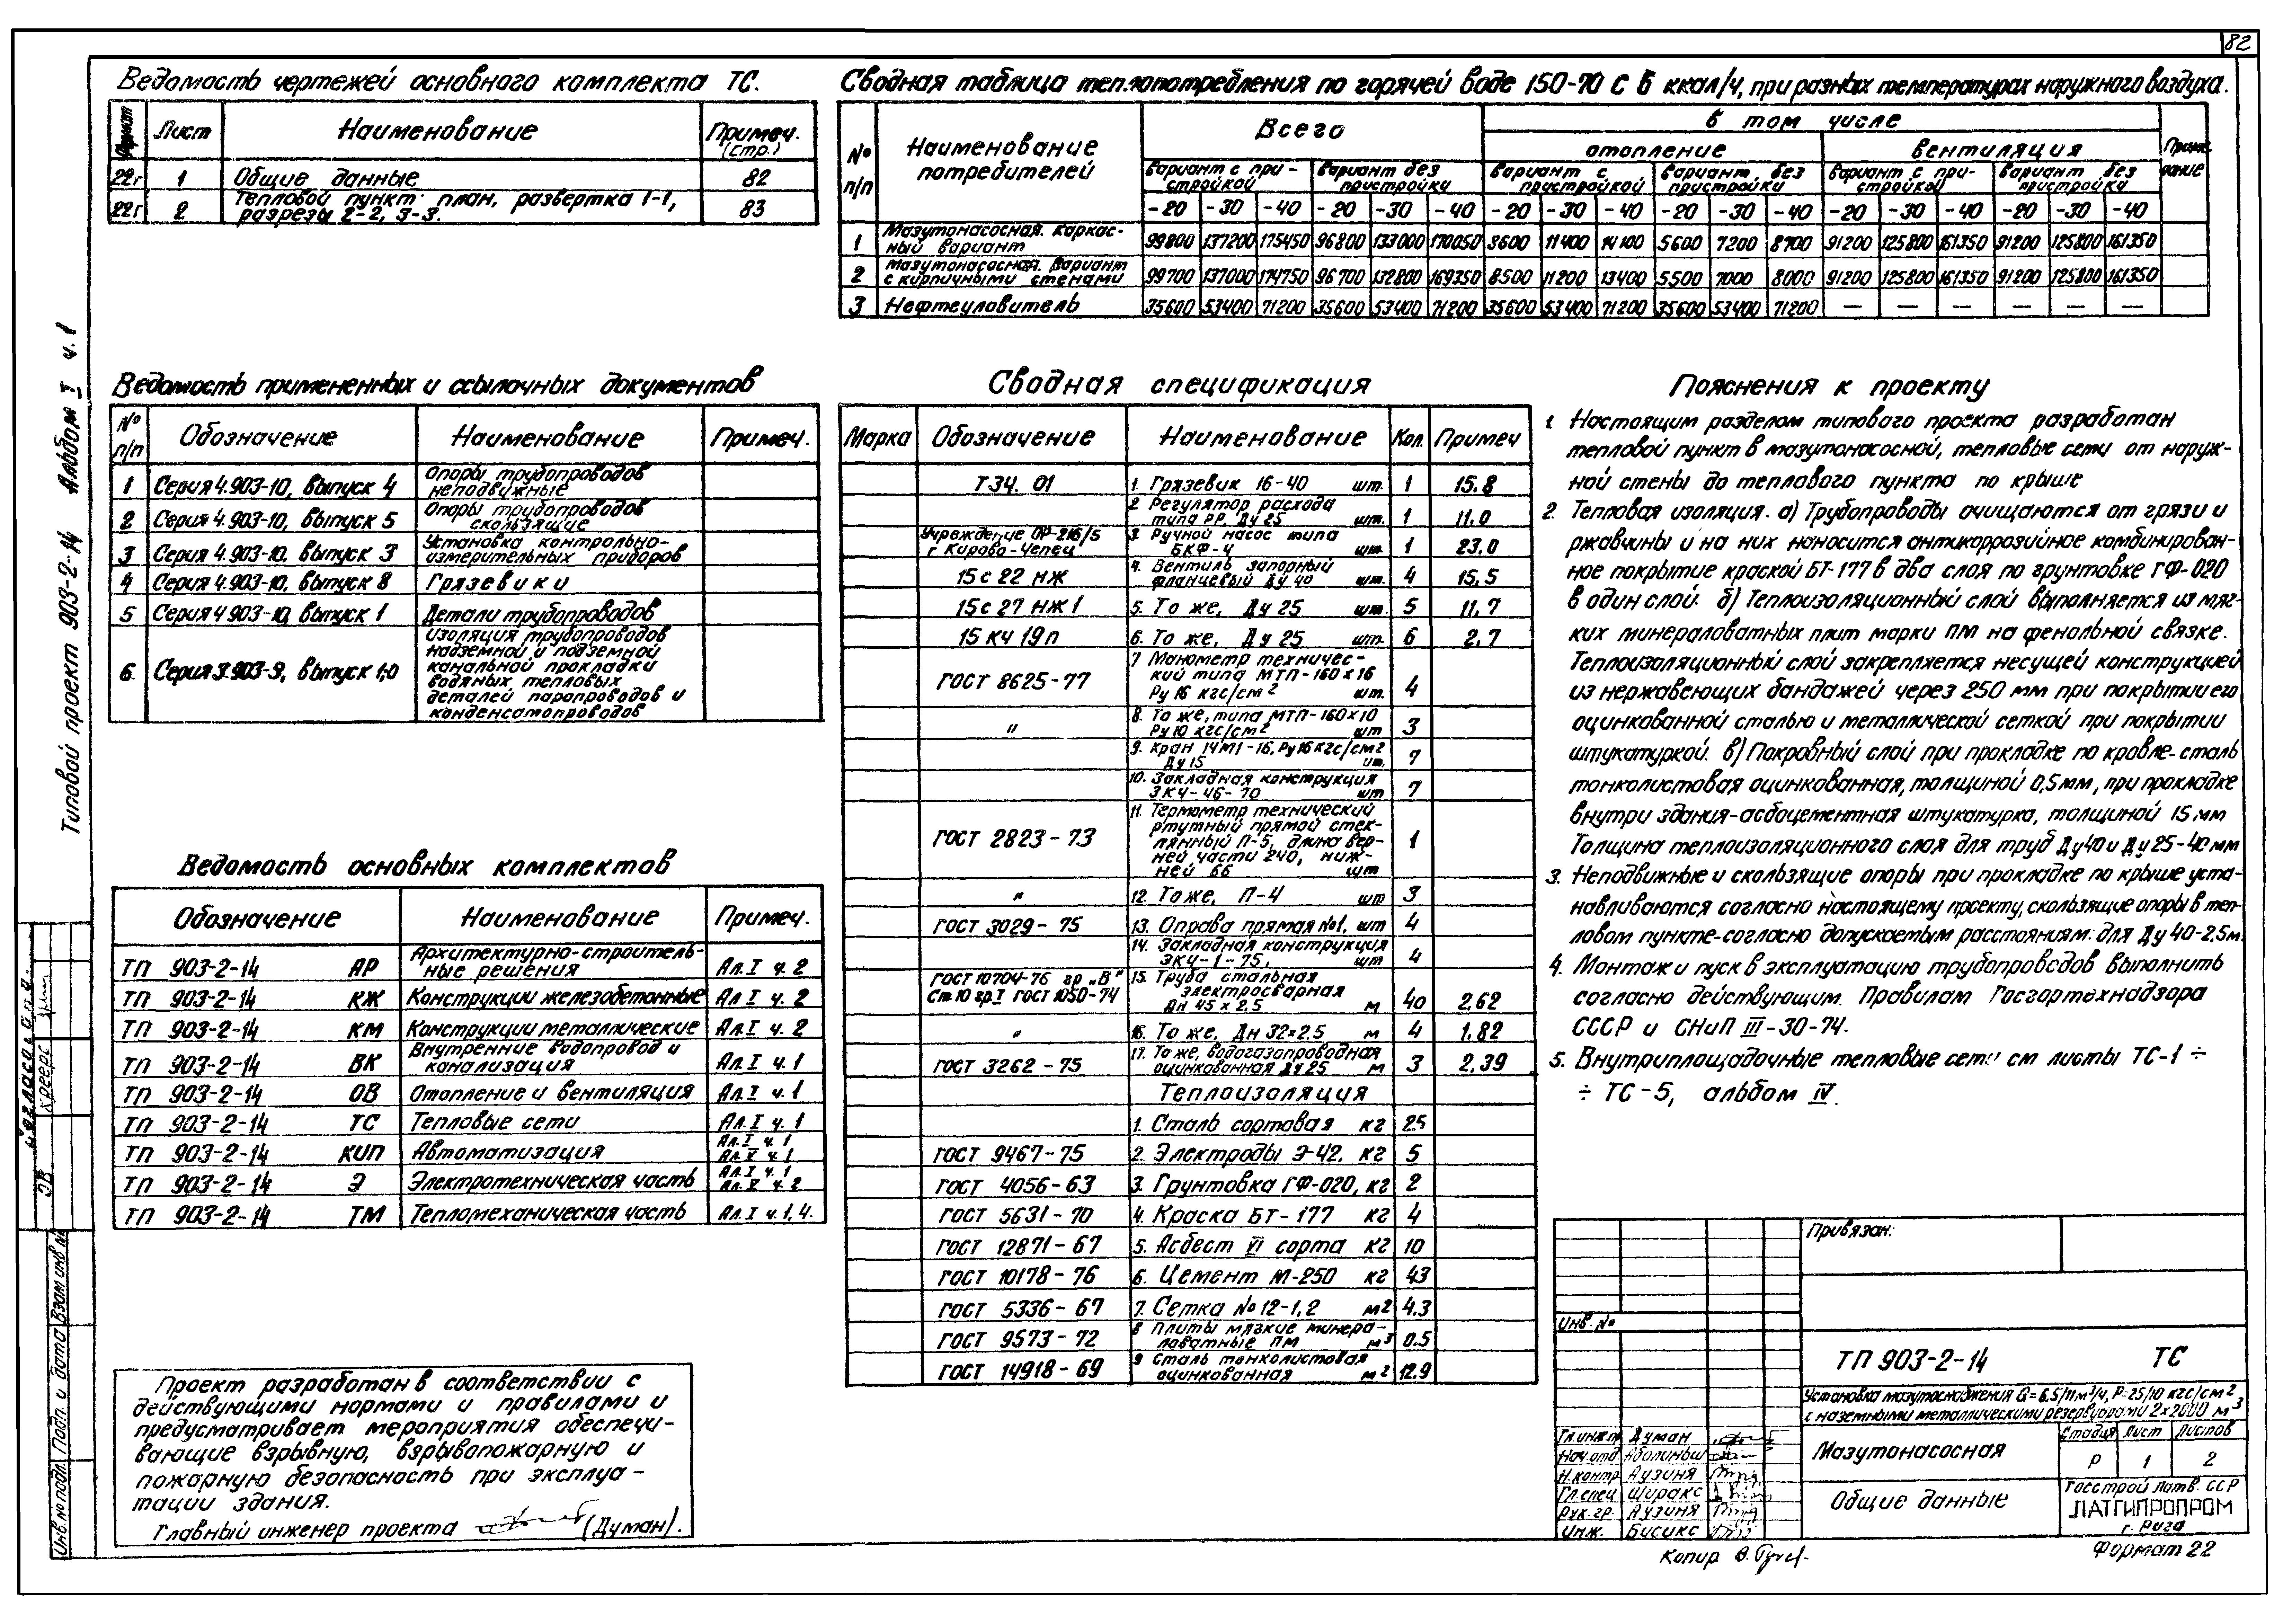 82
Ведомость чертежей основного комплекта ТС.
Формат Лист Наименование Примеч. (стр.)
22г 1 Общие данные 82
22г 2 Тепловой пункт: план, развертка 1-1,
разрезы 2-2, 3-3. 83
Сводная таблица теплопотребления по горячей воде 150-70 С в ккал/ч, при разных температурах наружного воздуха.
№ п/п Наименование потребителей Всего В том числе Приме чание
отопление вентиляция
Вариант с пристройкой Вариант без пристройки Вариант с пристройкой Вариант без пристройки Вариант с пристройкой Вариант без пристройки
-20 -30 -40 -20 -30 -40 -20 -30 -40 -20 -30 -40 -20 -30 -40 -20 -30 -40
1 Мазутонасосная. Каркасный вариант 99800 137200 175450 96800 133000 170050 3600 11400 14100 5600 7200 8700 91200 125800 161350 91200 125800 161350
2 Мазутонасосная. Вариант с кирпичными стенами 99700 137000 174750 96700 132800 169350 8500 11200 13400 5500 7000 8000 91200 125800 161350 91200 125800 161350
3 Нефтеуловитель 35600 53400 71200 35600 53400 71200 35600 53400 71200 35600 53400 71200 — — — — — —
Ведомость примененных и ссылочных документов
№ п/п Обозначение Наименование Примеч.
1 Серия 4.903-10, выпуск 4 Опоры трубопроводов неподвижные
2 Серия 4.903-10, выпуск 5 Опоры трубопроводов скользящие
3 Серия 4.903-10, выпуск 3 Установка контрольно-измерительных приборов
4 Серия 4.903-10, выпуск 8 Грязевики
5 Серия 4 903-10, выпуск 1 Детали трубопроводов
6. Серия 3.903-9, выпуск 1,0 Изоляция трубопроводов
надземной и подземной
канальной прокладки
водяных, тепловых
деталей паропроводов и
конденсатопроводов
Ведомость основных комплектов
Обозначение Наименование Примеч.
ТП 903-2-14 АР Архитектурно-строительные решения Ал.I ч. 2
ТП 903-2-14 КЖ Конструкции железобетонные Ал I ч. 2
ТП 903-2-14 КМ Конструкции металлические Ал. I ч. 2
ТП 903-2-14 ВК Внутренние водопровод и канализация Ал.I ч. 1
ТП 903-2-14 ОВ Отопление и вентиляция Ал. I ч. 1
ТП 903-2-14 ТС Тепловые сети Ал.I ч. 1
ТП 903-2-14 КИП Автоматизация Ал.I ч. 1 Ал. V ч. 2
ТП 903-2-14 Э Электротехническая часть Ал.I ч. 1 Ал. V ч. 2
ТП 903-2-14 ТМ Тепломеханическая часть Ал.I ч.1,4.
Проект разработан в соответствии с
действующими нормами и правилами и
предусматривает мероприятия обеспечи-
вающие взрывную, взрывопожарную и
пожарную безопасность при эксплуа-
тации здания.
Главный инженер проекта (Думан).
Сводная спецификация
Марка Обозначение Наименование Кол. Примеч
Т 34. 01 1. Грязевик 16-40 шт. 1 15.8
2 Регулятор расхода типа РР. Ду 25 шт. 1 11.0
Учреждение ОР-216/5 г Кирово-Чепец 3. Ручной насос типа БКФ-4 шт. 1 23.0
15 с 22 нж 4. Вентиль запорный фланцевый Ду 40 шт. 4 15,5
15с 27 нж 1 5. То же, Ду 25 шт. 5 11.7
15 кч 19п 6. То же, Ду 25 шт. 6 2,7
ГОСТ 8625-77 7 Манометр технический типа МТП-160х16 Ру 16 кгс/см2 шт. 4
" 8. То же, типа МТП-160х10 Ру 10 кгс/см2 шт 3
9. Кран 14М1-16, Ру16кгс/см2 Ду 15 шт. 7
10. Закладная конструкция ЗК4-46-70 шт 7
ГОСТ 2823-73 11. Термометр технический
ртутный прямой стек-
лянный П-5, длина вер-
ней части 240, ниж-
ней 66 шт 1
" 12. То же, П-4 шт 3
ГОСТ 3029-75 13. Оправа прямая №1, шт 4
14. Закладная конструкция ЗК4-1-75, шт 4
ГОСТ 10704-76 гр „В" Ст.10 гр.I ГОСТ 1050-74 15. Труба стальная электросварная Дн 45 х 2,5 м 40 2,62
" 16. То же, Дн 32х2,5 м 4 1,82
ГОСТ 3262-75 17. То же, водогазопроводная оцинкованная Ду 25 м 3 2,39
Теплоизоляция
1. Сталь сортовая кг 25
ГОСТ 9467-75 2. Электроды Э-42, кг 5
ГОСТ 4056-63 3. Грунтовка ГФ-020, кг 2
ГОСТ 5631-70 4. Краска БТ-177 кг 4
ГОСТ 12871-67 5. Асбест VI сорта кг 10
ГОСТ 10178-76 6. Цемент М-250 кг 43
ГОСТ 5336-67 7. Сетка №12-1,2 м2 4.3
ГОСТ 9573-72 8 Плиты мягкие минераловатные ПМ м3 0.5
ГОСТ 14918-69 9 Сталь тонколистовая оцинкованная м2 12.9
Пояснения к проекту
1. Настоящим разделом типового проекта разработан
тепловой пункт в мазутонасосной, тепловые сети от наруж-
ной стены до теплового пункта по крыше
2. Тепловая изоляция. а) Трубопроводы очищаются от грязи и
ржавчины и на них наносится антикоррозийное комбинирован-
ное покрытие краской БТ-177 в два слоя по грунтовке ГФ-020
в один слой. б) Теплоизоляционный слой выполняется из мяг-
ких минераловатных плит марки ПМ на фенольной связке.
Теплоизоляционный слой закрепляется несущей конструкцией
из нержавеющих бандажей через 250 мм при покрытии его
оцинкованной сталью и металлической сеткой при покрытии
штукатуркой. в) Покровный слой при прокладке по кровле-сталь
тонколистовая оцинкованная, толщиной 0,5мм, при прокладке
внутри здания-асбоцементная штукатурка, толщиной 15 мм
Толщина теплоизоляционного слоя для труб Ду40 и Ду 25-40 мм
3. Неподвижные и скользящие опоры при прокладке по крыше уста-
навливаются согласно настоящему проекту, скользящие опоры в теп-
ловом пункте-согласно допускаемым расстояниям: для Ду 40-2,5м.
4. Монтаж и пуск в эксплуатацию трубопроводов выполнить
согласно действующим Правилам Госгортехнадзора
СССР и СНиП III-30-74.
5. Внутриплощадочные тепловые сети см листы ТС-1 ÷
÷ ТС-5, альбом IV.
Привязан:
Инв. №
ТП 903-2-14 ТС
Установка мазутоснабжения Q=6.5/11м3/ч, Р=25/10 кгс/см2
с наземными металлическими резервуарами 2х2000 м3
Гл.инж.пр Думан
Нач.отд Аболиньш
Н.контр Аузиня
Гл.спец Ширакс
Рук.гр. Аузиня
Инж. Бусикс
Мазутонасосная
Стадия Лист Листов
Р 1 2
Общие данные
Госстрой Латв. ССР
ЛАТГИПРОПРОМ
г. Рига
Копир
Формат 22
Типовой проект 903-2-14 Альбом I ч. 1
Согласовано
ОВ Креерс
Инв.№ подл. Подп. и дата Взам инв №